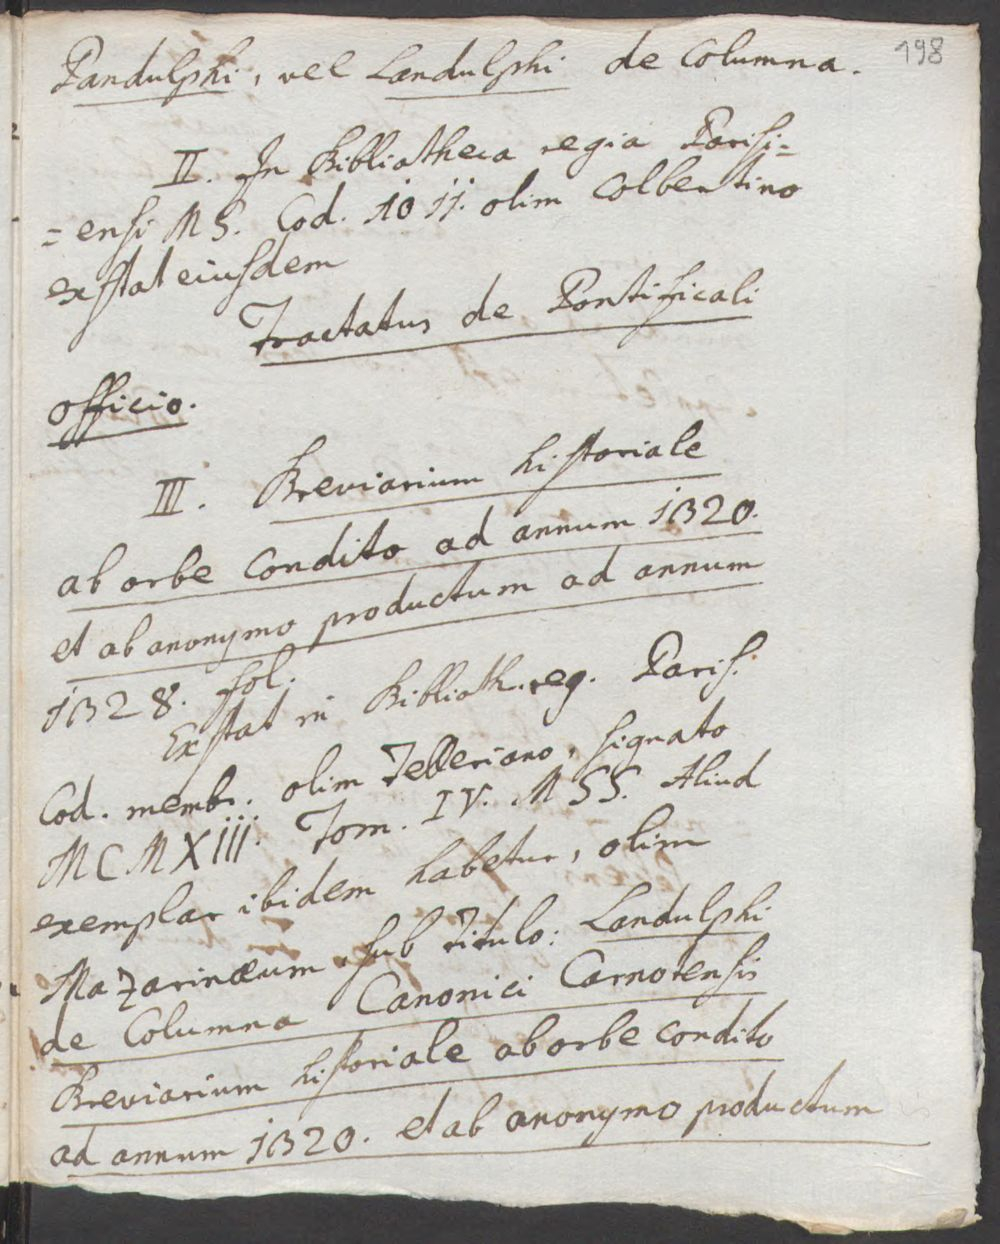 198
Pandulphi, vel Landulphi de Columna.
II. In Bibliotheca regia Parisi=
=ensi MS. Cod. 1011. olim Colbertino
exstat eiusdem
Tractatus de Pontificali
officio.
III. Breviarium historiale
ab orbe condito ad annum 1320.
et ab anonymo productum ad annum
1328. fol.
Exstat in Biblioth. reg. Paris.
Cod. membr. olim Telleriano, signato
MCMXIII. Tom. IV. MSS. Aliud
exemplar ibidem habetur, olim
Mazarinæum sub titulo: Landulphi
de Columna Canonici Carnotensis
Breviarium historiale ab orbe condito
ad annum 1320. et ab anonymo productum